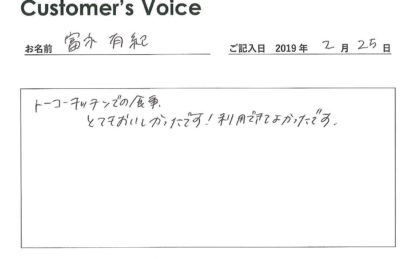 Customer's Voice
お名前 富永 有紀 ご記入日 2019年 2月 25日
トーコーキッチンでの食事、
とてもおいしかったです！利用できてよかったです。